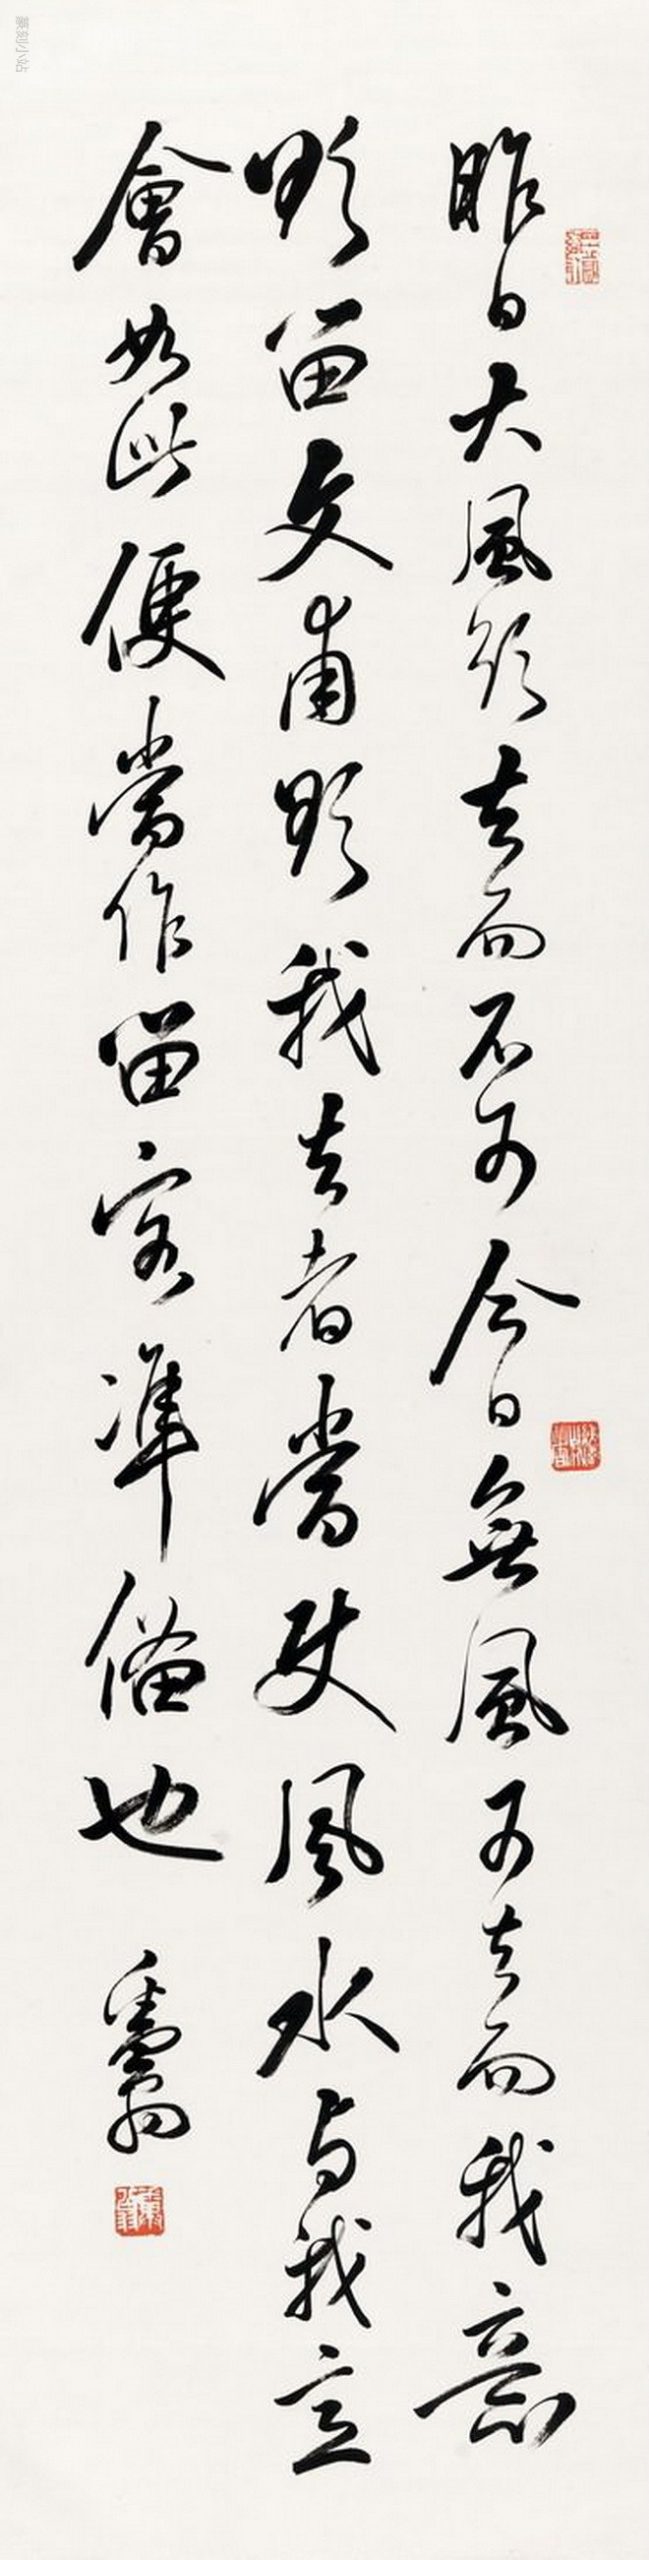 昨日大風欲去而不可今日無風可去而我意
欲留文甫欲我去者當使風水与我意
會如此便當作留客準備也
篆刻小站